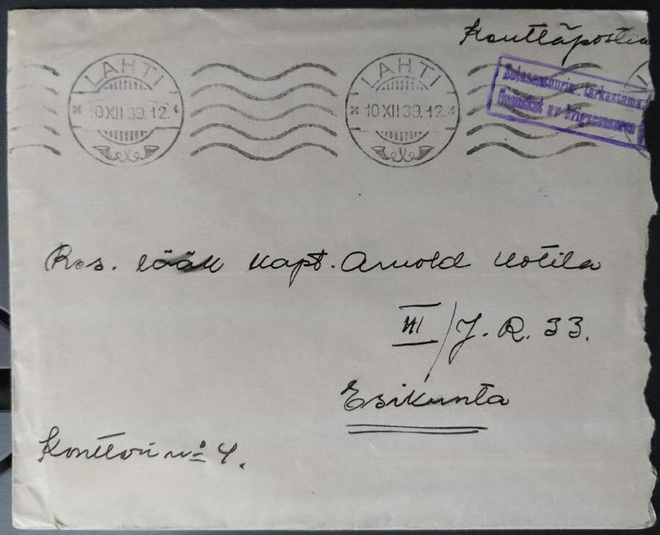 Kenttäpostia
LAHTI
10XII39.12.
LAHTI
10XII39.12.
Sotasensuurin tarkastama
Granskat av krigscensuren
Res. lääk kapt. Arnold Kotila
III/J.R. 33.
Esikunta
Konttori no 4.